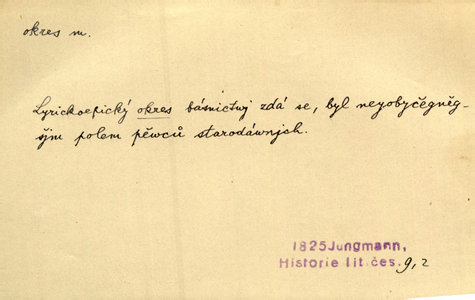 okres m.
Lyrickoefický okres básnictwj zdá se, byl neyobyčegněg-
šjm polem pěwců starodáwnjch.
1825 Jungmann,
Historie lit. čes. 9, 2